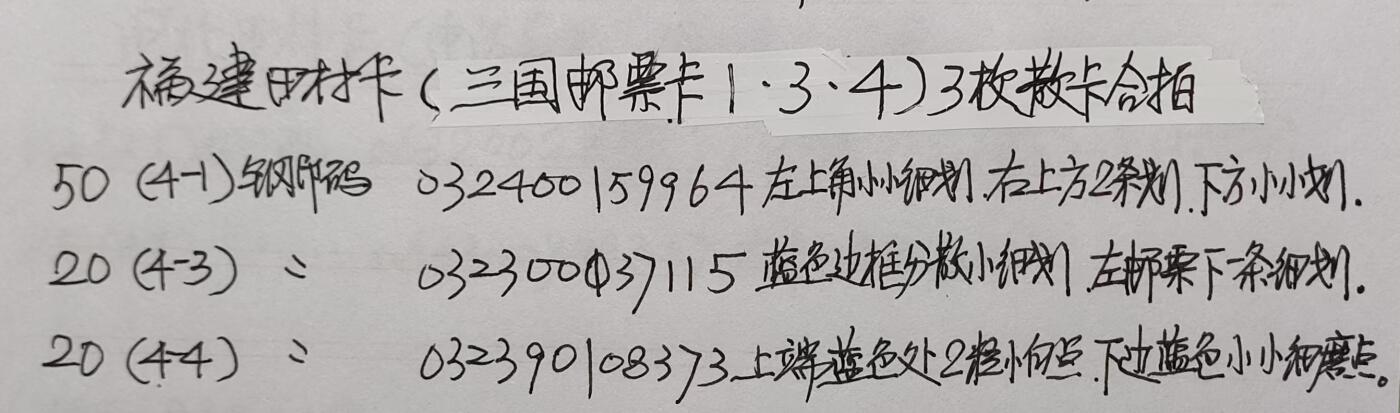 福建田村卡(三国邮票卡1·3·4)3枚散卡合拍
50 (4-1)钢印码 032400159964 左上角小小细划.右上方2条划.下方小小划.
20 (4-3) 〃 032300037115 蓝色边框分散小细划.左邮票下一条细划.
20 (4-4) 〃 032390108373 上端蓝色处2粒小白点.下边蓝色小小细磨点。